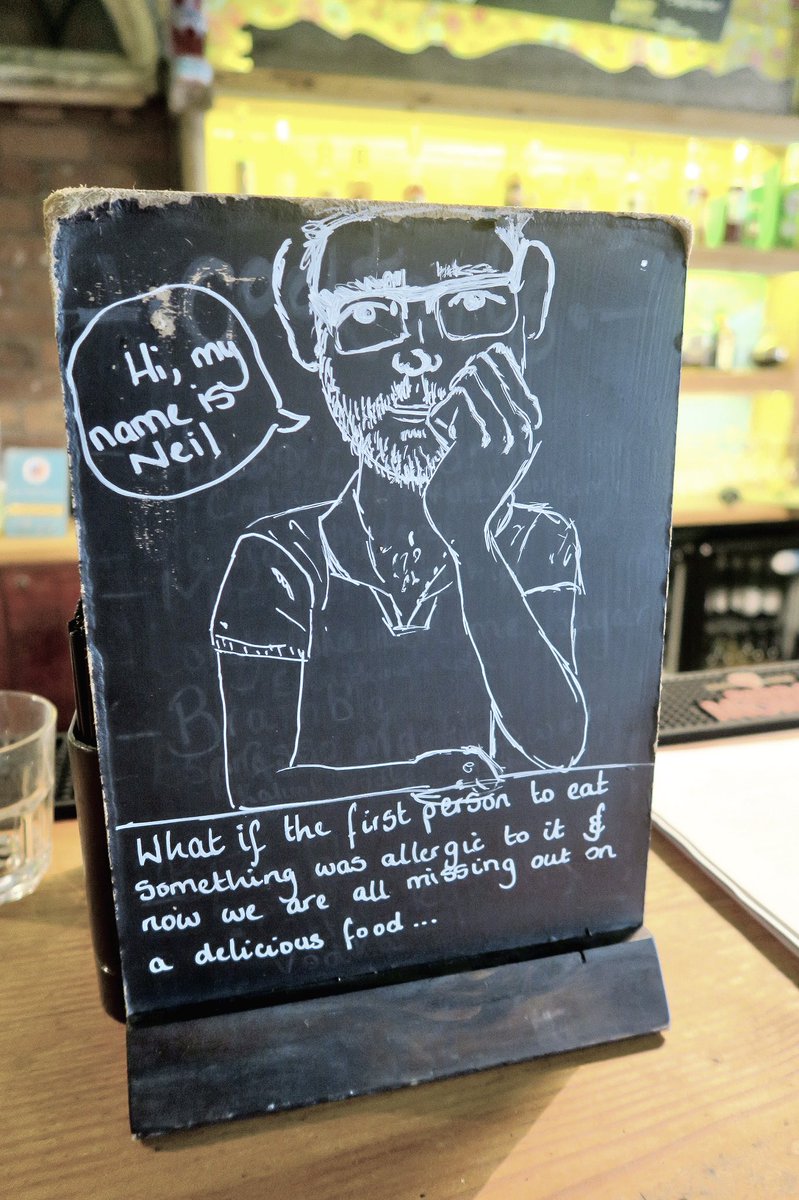 Hi, my
name is
Neil
What if the first person to eat
something was allergic to it &
now we are all missing out on
a delicious food...